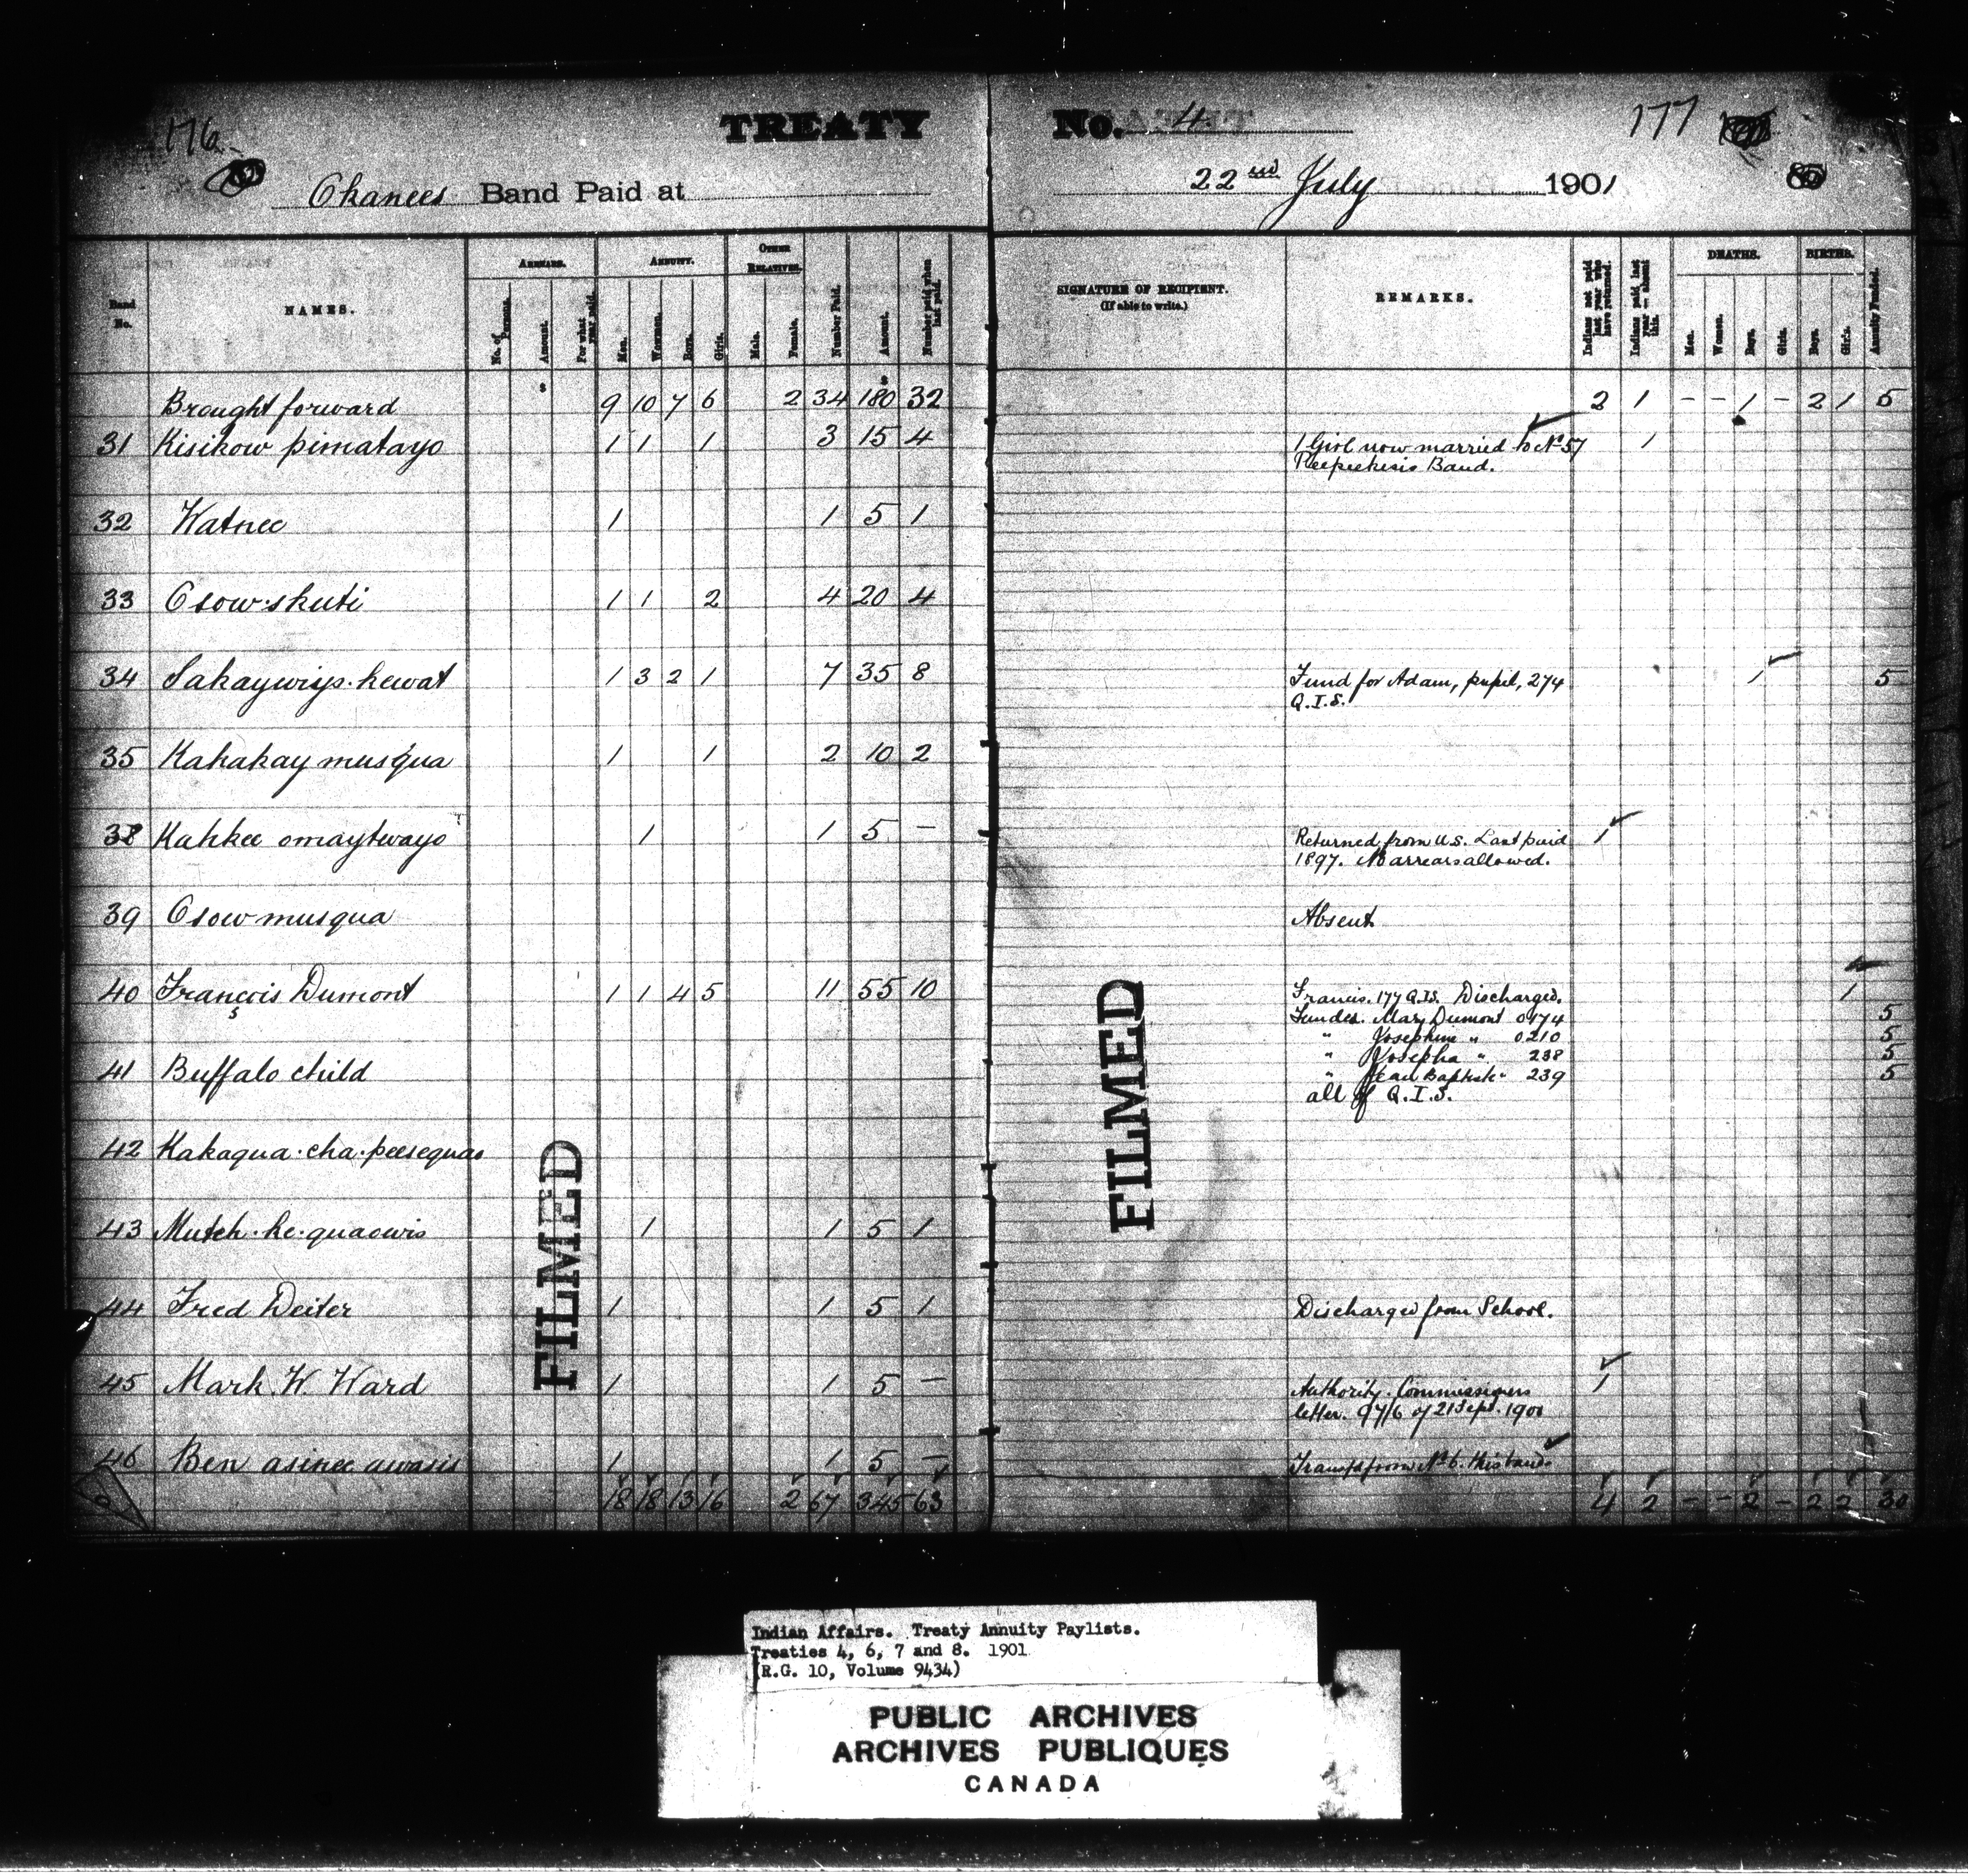 176
TREATY No. 4.
177
Okanees Band Paid at 22nd July 1901
Band No.
NAMES.
ARREARS.
No. of Persons.
Amount.
For what year paid.
ANNUITY.
Men.
Women.
Boys.
Girls.
OTHER RELATIVES.
Male.
Female.
Number Paid.
Amount.
Number paid when last paid.
SIGNATURE OF RECIPIENT.
(If able to write.)
REMARKS.
Indians not paid last year who have returned.
Indians paid last year – absent this.
DEATHS.
Men.
Women.
Boys.
Girls.
BIRTHS.
Boys.
Girls.
Annuity Funded.
$ $
Brought forward 9 10 7 6 2 34 180 32 2 1 – – 1 – 2 1 5
31 Kisikow pimatayo 1 1 1 3 15 4 1 Girl now married to No 57 1
Peepeekesis Band.
32 Katnee 1 1 5 1
33 Osow·skuti 1 1 2 4 20 4
34 Sakaywiys·kewat 1 3 2 1 7 35 8 Fund for Adam, pupil, 274 1 5
Q.I.S.
35 Kahakay musqua 1 1 2 10 2
38 Kahkee omaytwayo 1 1 5 – Returned from U.S. Last paid 1
1897. No arrears allowed.
39 Osow musqua Absent
40 François Dumont 1 1 4 5 11 55 10 Francis. 177 Q.I.S. Discharged. 1
Funded. Mary Dumont 0174 5
" Josephine " 0210 5
" Josepha " 238 5
41 Buffalo child " Jean Baptiste " 239 5
all of Q.I.S.
42 Kakaqua·cha·peesequao
43 Mutch·ke·quaowis 1 1 5 1
44 Fred Deiter 1 1 5 1 Discharged from School.
45 Mark W. Ward 1 1 5 – Authority. Commissioners 1
letter. 97/6 of 21 Sept. 1900
46 Ben asinee awasis 1 1 5 – Transfd from No 6. this band.
18 18 13 16 2 67 345 63 4 2 – – 2 – 2 2 30
FILMED
FILMED
Indian Affairs. Treaty Annuity Paylists.
Treaties 4, 6, 7 and 8. 1901
(R.G. 10, Volume 9434)
PUBLIC ARCHIVES
ARCHIVES PUBLIQUES
CANADA